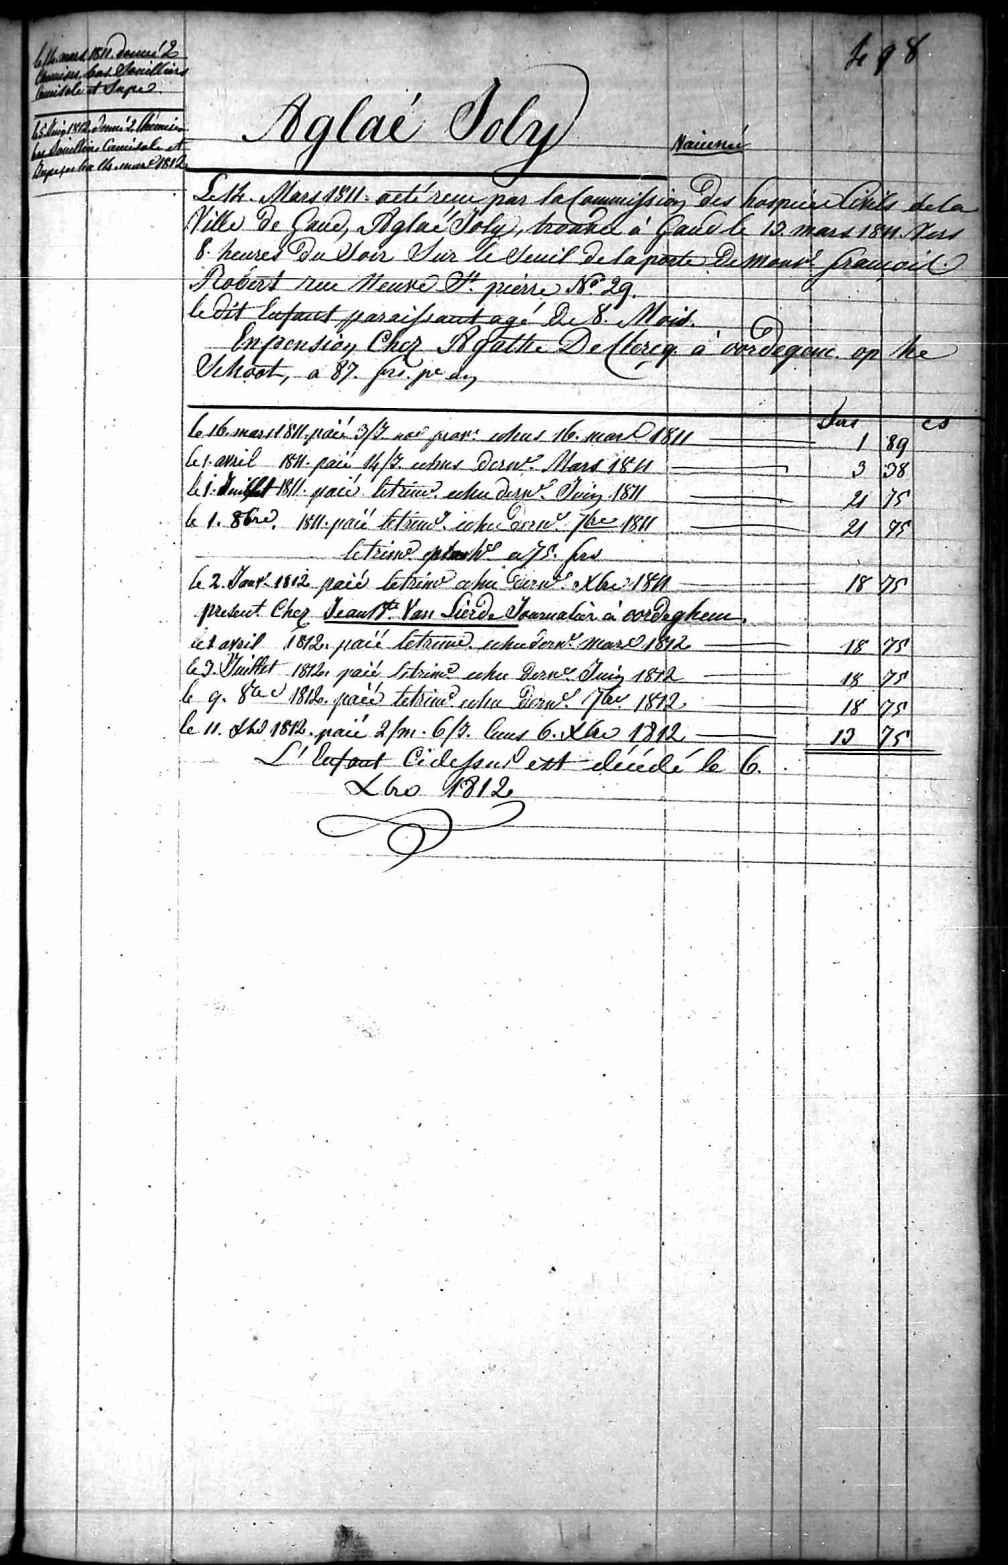 498
le 14. mars 1811. donné 2
Chemises bas Souilliers
Camisole et Jupe.
le 5. Juin 1812. donné 2. Chemises
bas Souilliers Camisole et
Jupe pr la 14. mars 1812
Aglaé Joly
Vaicinné
Le 14. Mars 1811. a eté reçu par la Commission des hospices Civils de la
Ville de Gand, Aglaé Joly, trouvée à Gand le 13. mars 1811. Vers
8. heures du Soir Sur le Seuil de la porte de Monsr. françois
Robert rue Neuve St. pierre No. 29.
le dit Enfant paraissant agé De 8. Mois.
En pension Chez Agathe De Clercq à oordegem op he
Schoot, a 87. frs. pr an,
frs cs
le 16. mars 1811. paié 3/J. echus 16. mars 1811 1 89
le 1. avril 1811. paié 14/J. echus dernr. Mars 1811 3 38
le 1. Juillet 1811. paié le trimr. echu dernr. Juin 1811 21 75
le 1. 8bre. 1811. paié le trimr. echu dernr. 7bre 1811 21 75
le trimr. a 75. frs
le 2. Janv. 1812 paié le trimr echu dernr. Xbre 1811 18 75
present Chez Jean Bte. Van Lierde Journalier à oordeghem.
le 1 avril 1812. paié le trimr. echu dernr. mars 1812 18 75
le 3. Juillet 1812. paié le trimr echu dernr. Juin 1812 18 75
le 9. 8bre 1812. paié le trimr echu dernr. 7bre 1812. 18 75
le 11. Xbre 1812. paié 2/m. 6/J. echus 6. Xbre 1812 13 75
L'Enfant Cidessus est décédé le 6.
Xbre 1812